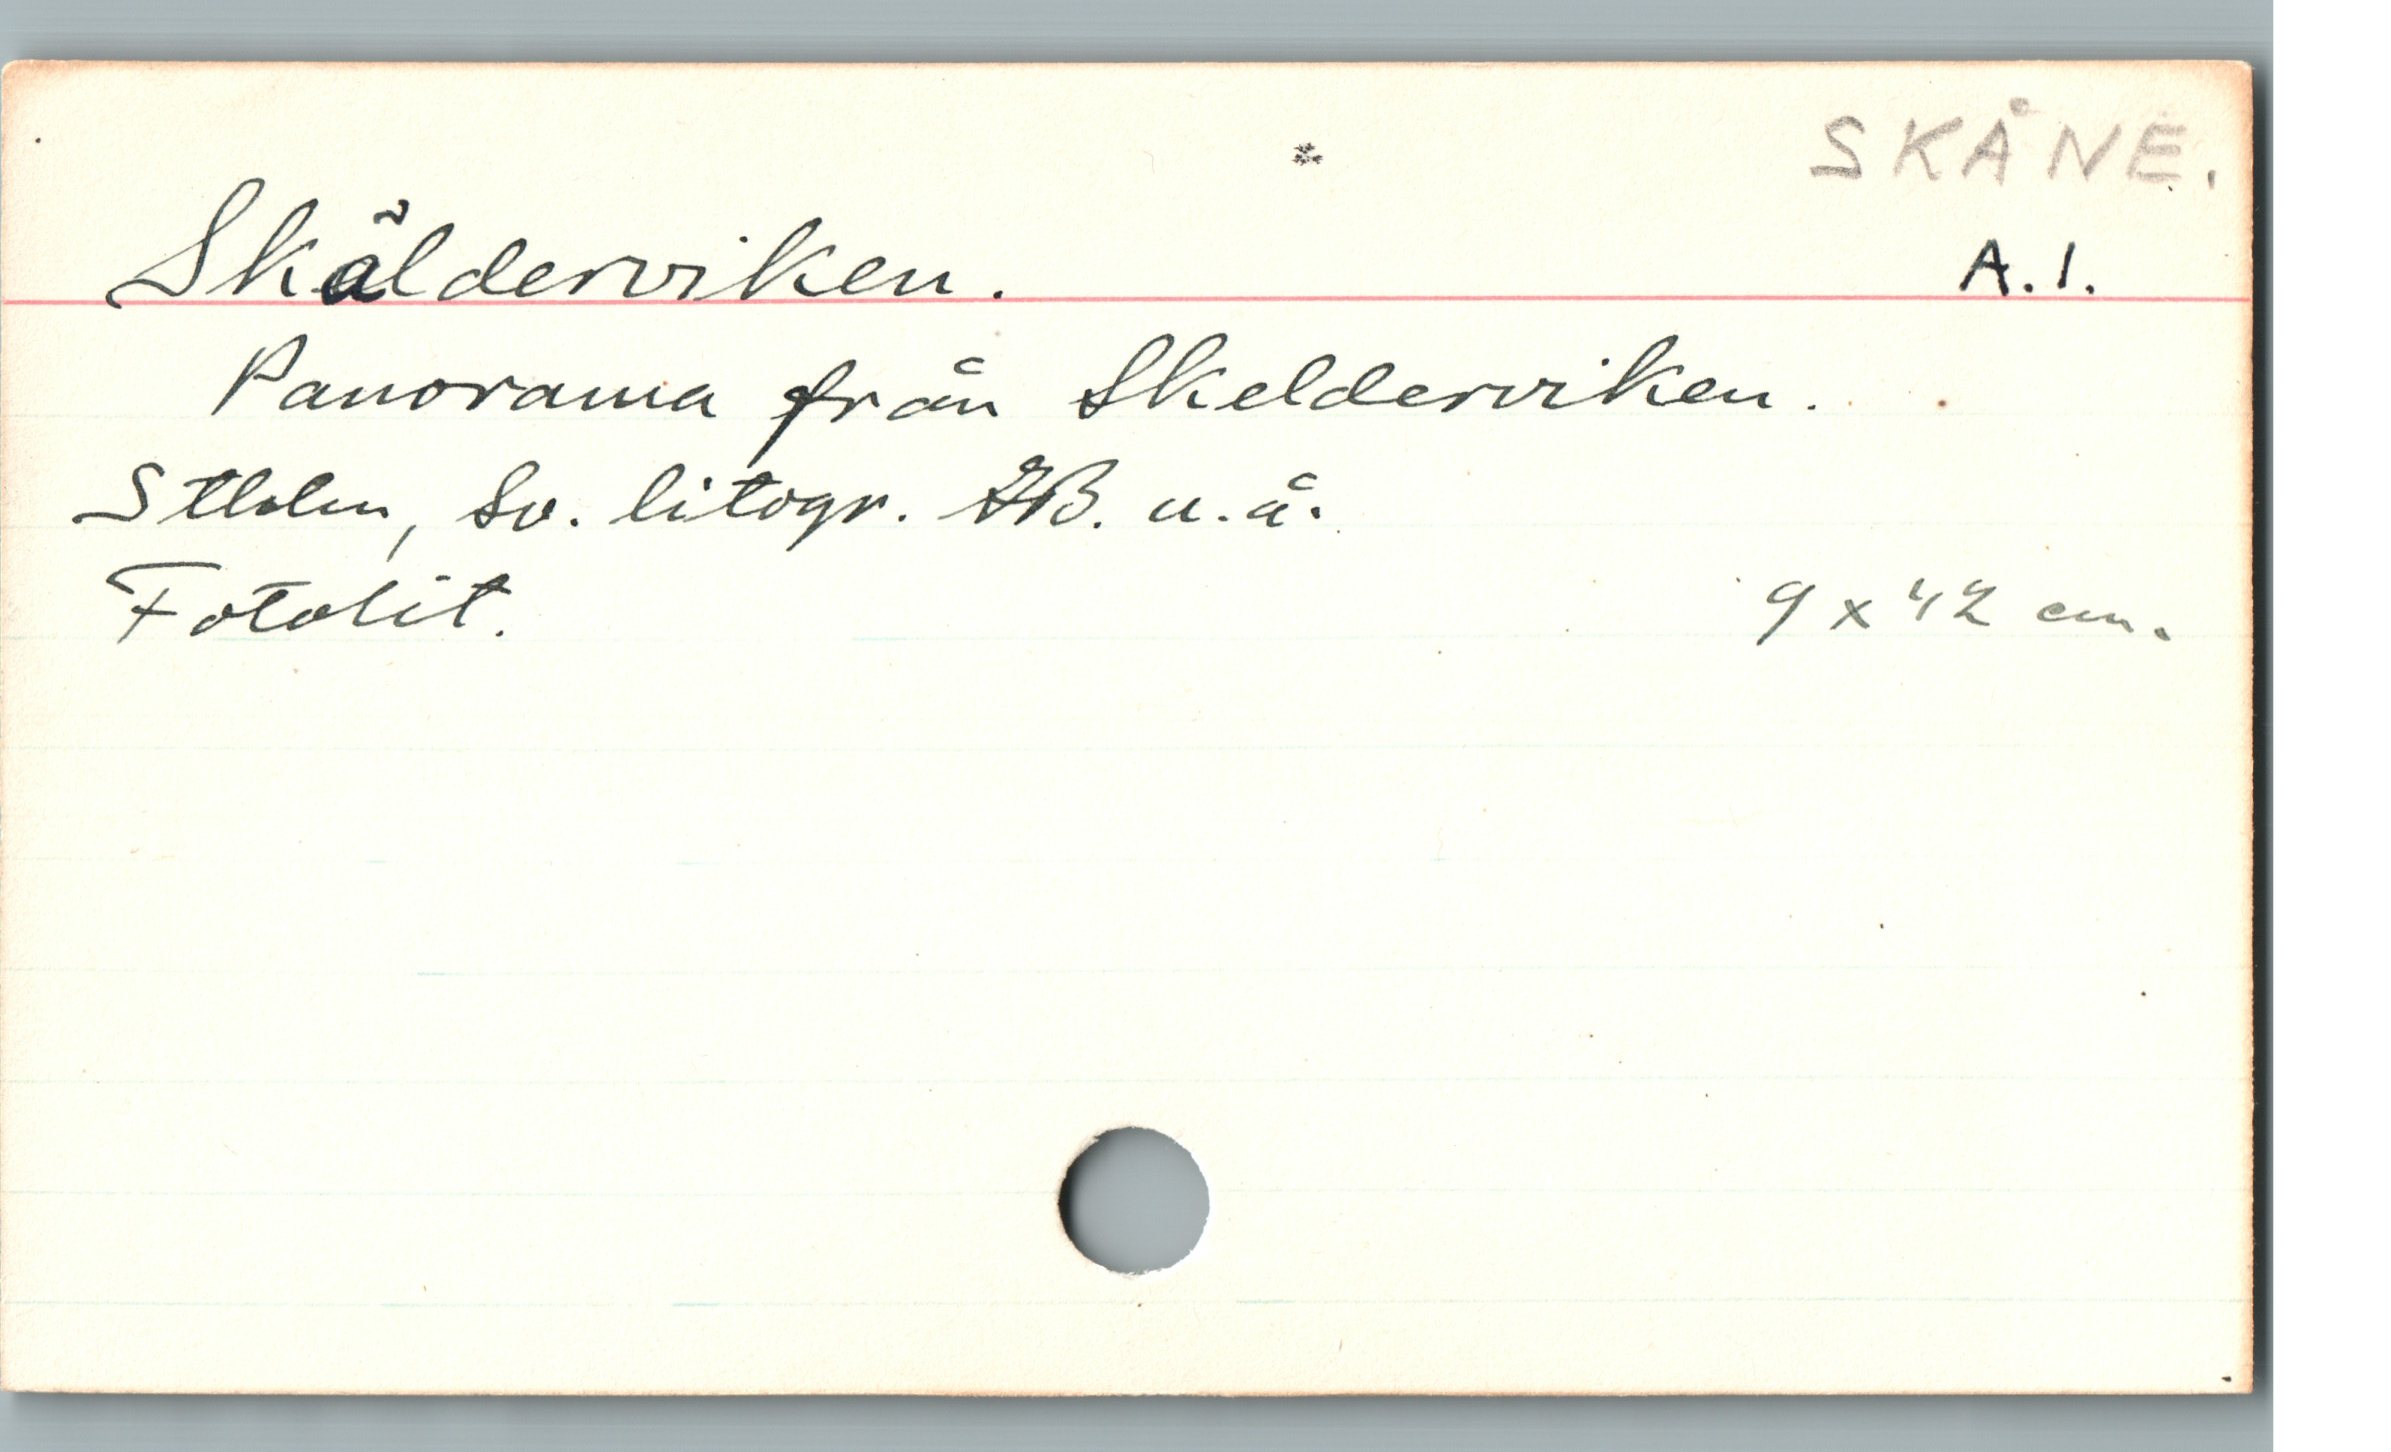 *
SKÅNE.
Skälderviken. A.1.
Panorama från Skelderviken.
Sthlm, Sv. litogr. AB. u.å.
Fotolit. 9 x 42 cm.